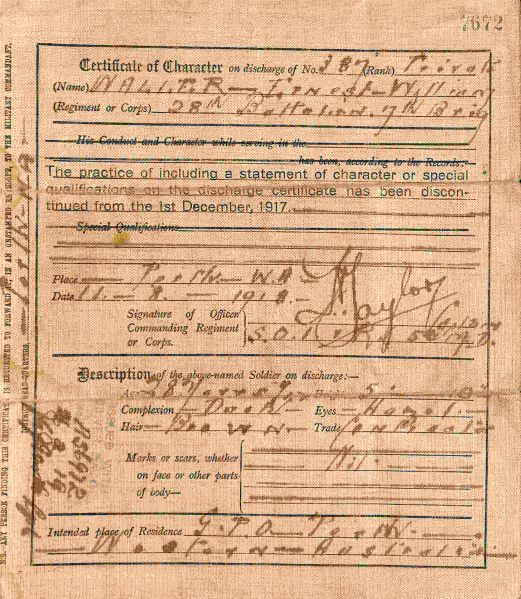 7672
Certificate of Character on discharge of No. 387 (Rank) Private
(Name) WALTER Ernest William
(Regiment or Corps) 28th Battalion 7th Brig
His Conduct and Character while serving in the
has been, according to the Records:-
The practice of including a statement of character or special
qualifications on the discharge certificate has been discon-
tinued from the 1st December, 1917.
Special Qualifications
Place Perth W.A.
Date 11-8-1918.
Signature of Officer
Commanding Regiment
or Corps.
Description of the above-named Soldier on discharge:—
Age
Complexion Dark Eyes Hazel.
Hair Brown Trade
Marks or scars, whether
on face or other parts
of body—
Nil
Intended place of Residence G.P.O. Perth
Western Australia
N.B.—ANY PERSON FINDING THIS CERTIFICATE IS REQUESTED TO FORWARD IT, IN AN UNSTAMPED ENVELOPE, TO THE MILITARY COMMANDANT,
DISTRICT HEAD-QUARTERS, Perth W.A.